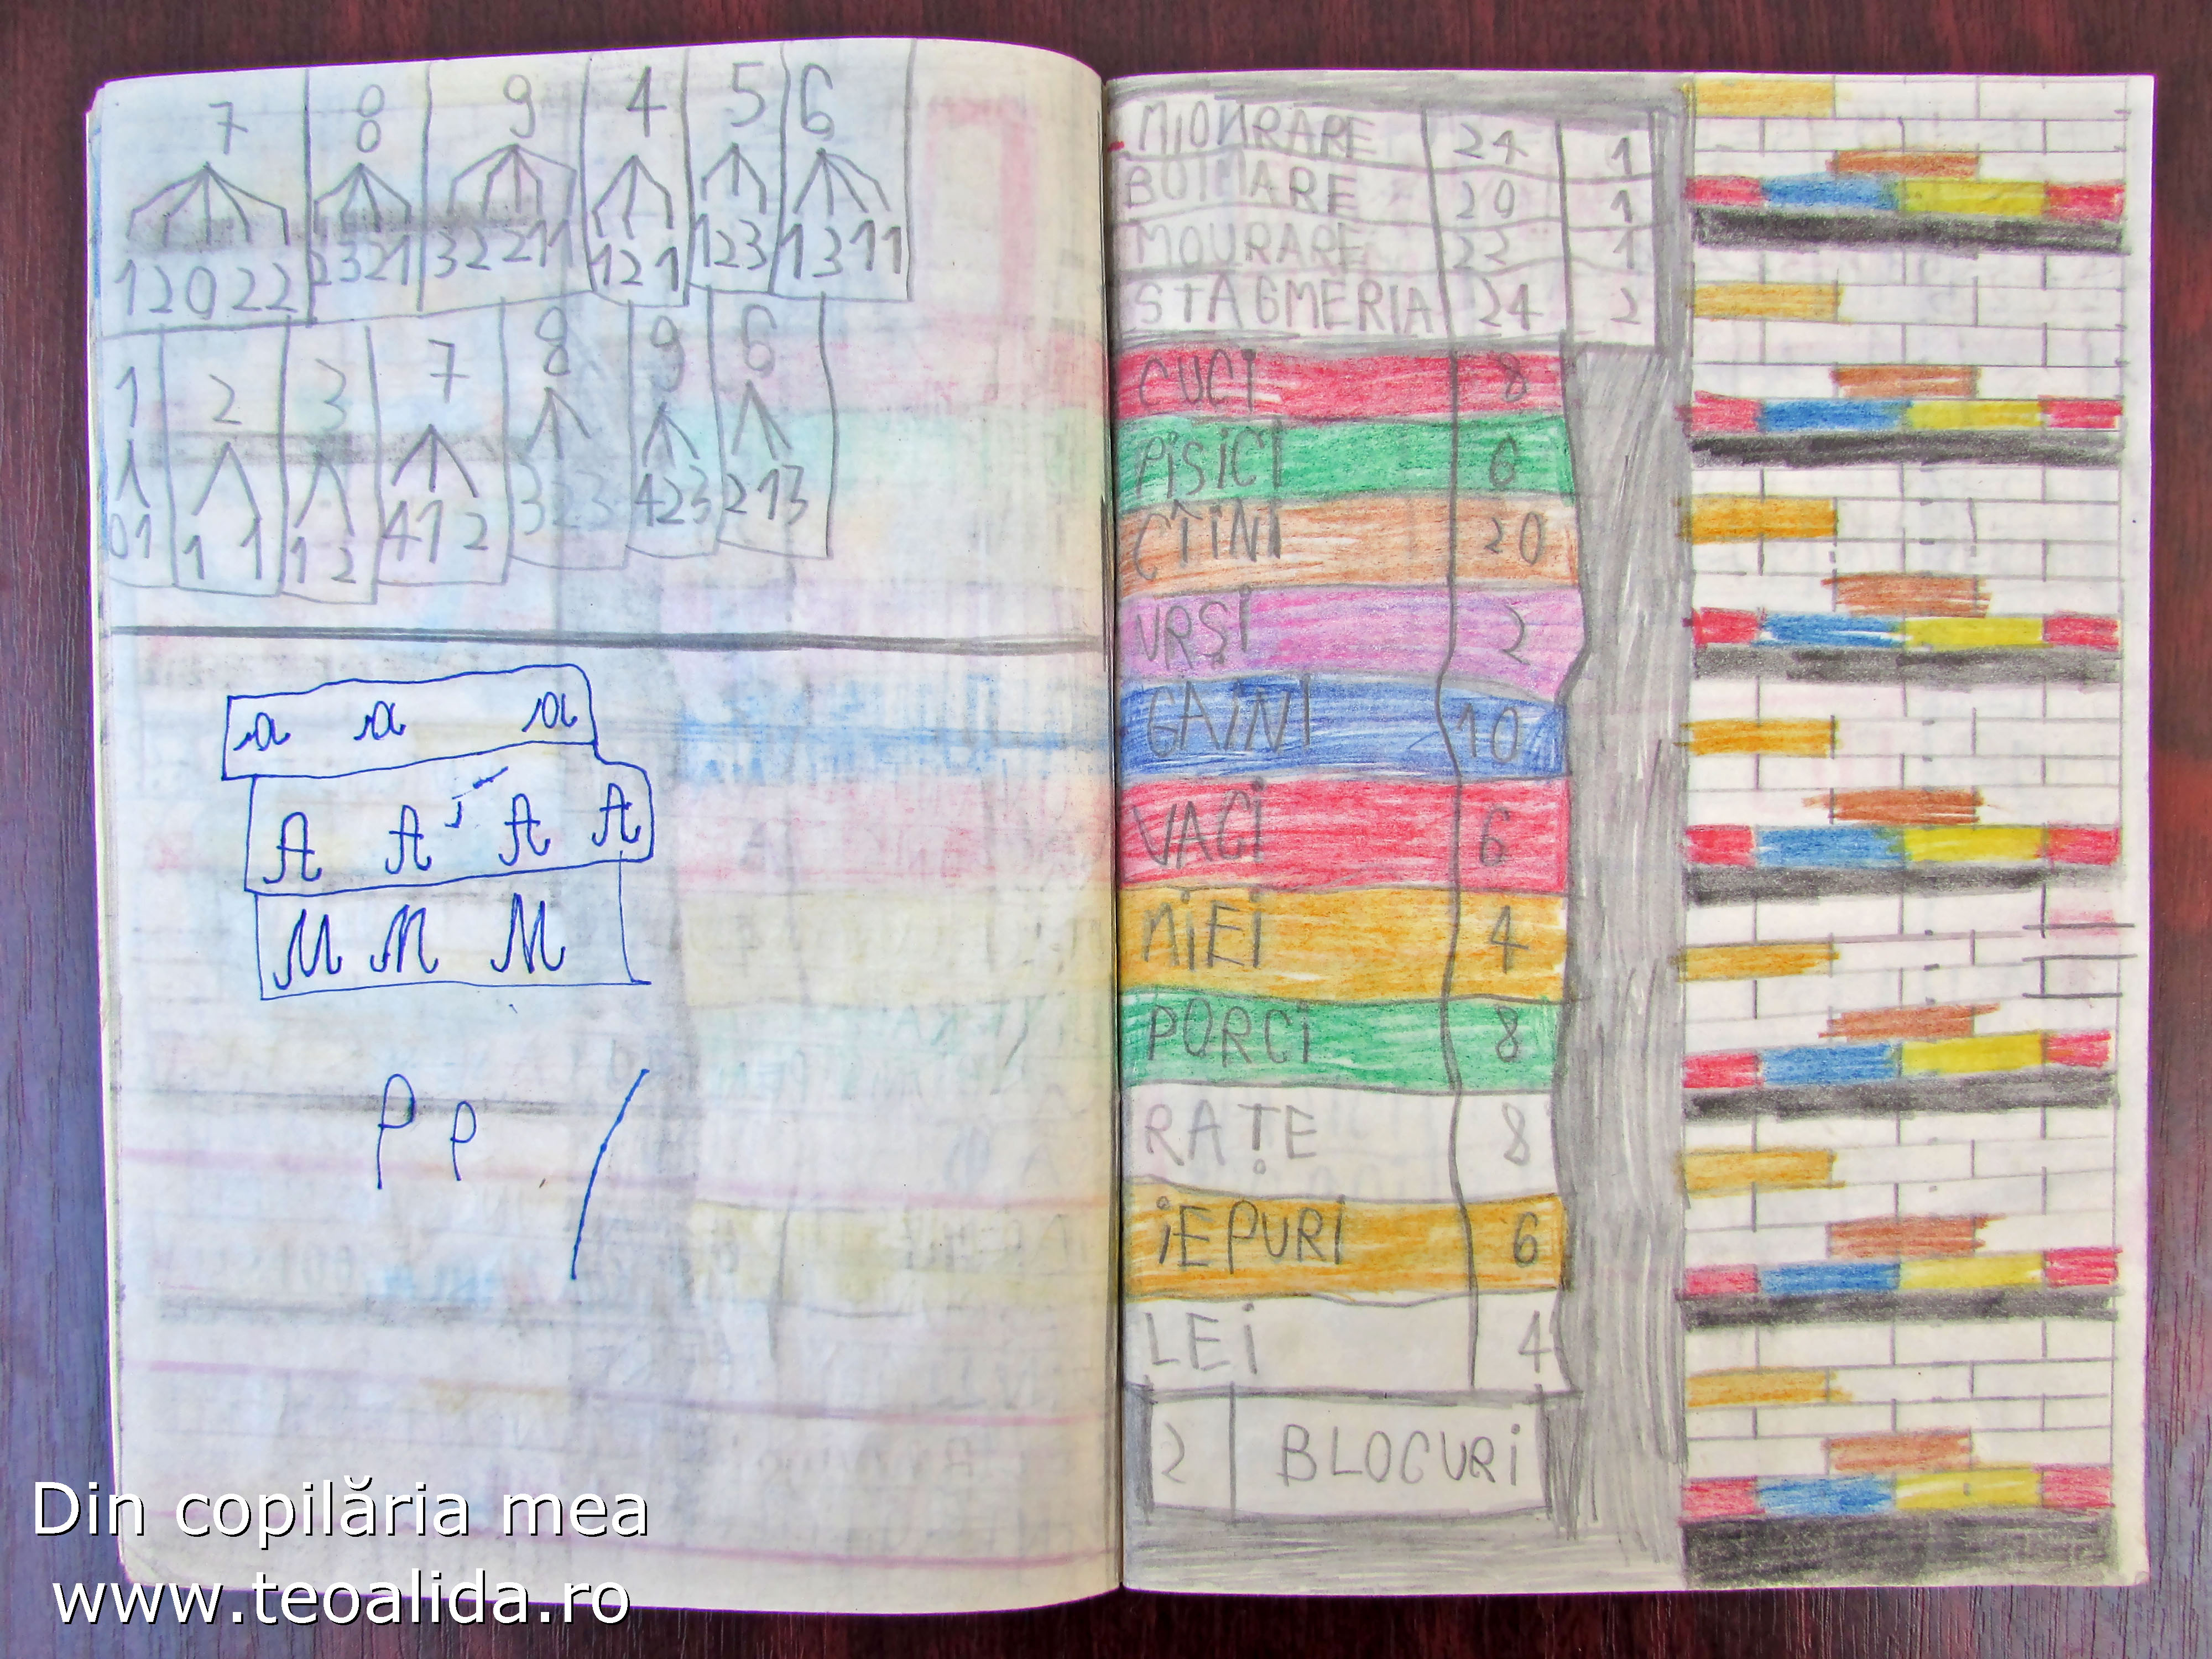 7 8 9 4 5 6
12022 2321 32211 121 123 1311
1 2 3 7 8 9 6
01 11 12 412 323 423 213
a a a
A A A A
M M M
P p
MIOURARE 24 1
BOTNARE 20 1
MOURARE 22 1
STAGMERIA 24 2
CUCI 8
PISICI 6
CÎINI 20
URȘI 2
GAINI 10
VACI 6
MIEI 4
PORCI 8
RAȚE 8
IEPURI 6
LEI 4
2 BLOCURI
Din copilăria mea
www.teoalida.ro